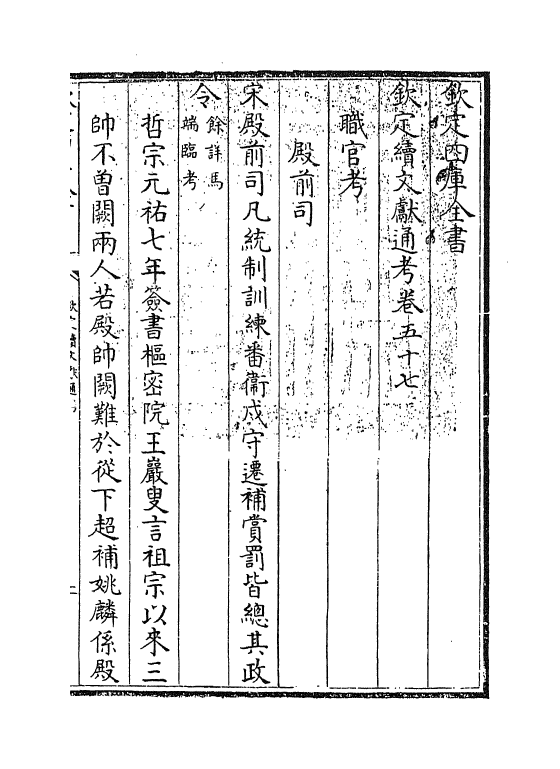 欽定四庫全書
欽定續文獻通考卷五十七
職官考
殿前司
宋殿前司凡統制訓練番衞戍守遷補賞罰皆總其政
令餘詳馬
端臨考
哲宗元祐七年簽書樞密院王巖叟言祖宗以來三
帥不曽闕兩人若殿帥闕難於從下超補姚麟係殿